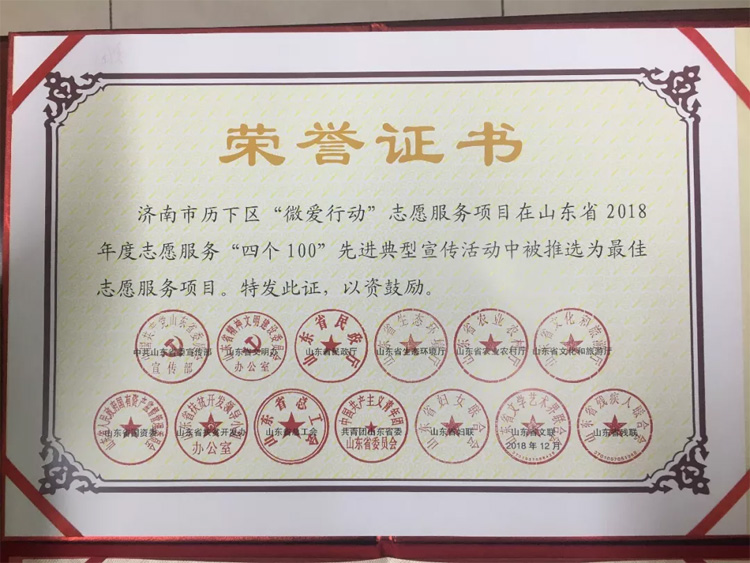 荣誉证书
济南市历下区“微爱行动”志愿服务项目在山东省2018
年度志愿服务“四个100”先进典型宣传活动中被推选为最佳
志愿服务项目。特发此证，以资鼓励。
中共山东省委宣传部 山东省文明办 山东省民政厅 山东省生态环境厅 山东省农业农村厅 山东省文化和旅游厅
宣传部 办公室
山东省国资委 山东省扶贫开发办 山东省总工会 共青团山东省委 山东省妇联 山东省文联 山东省残联
办公室 山东省委员会 2018年12月